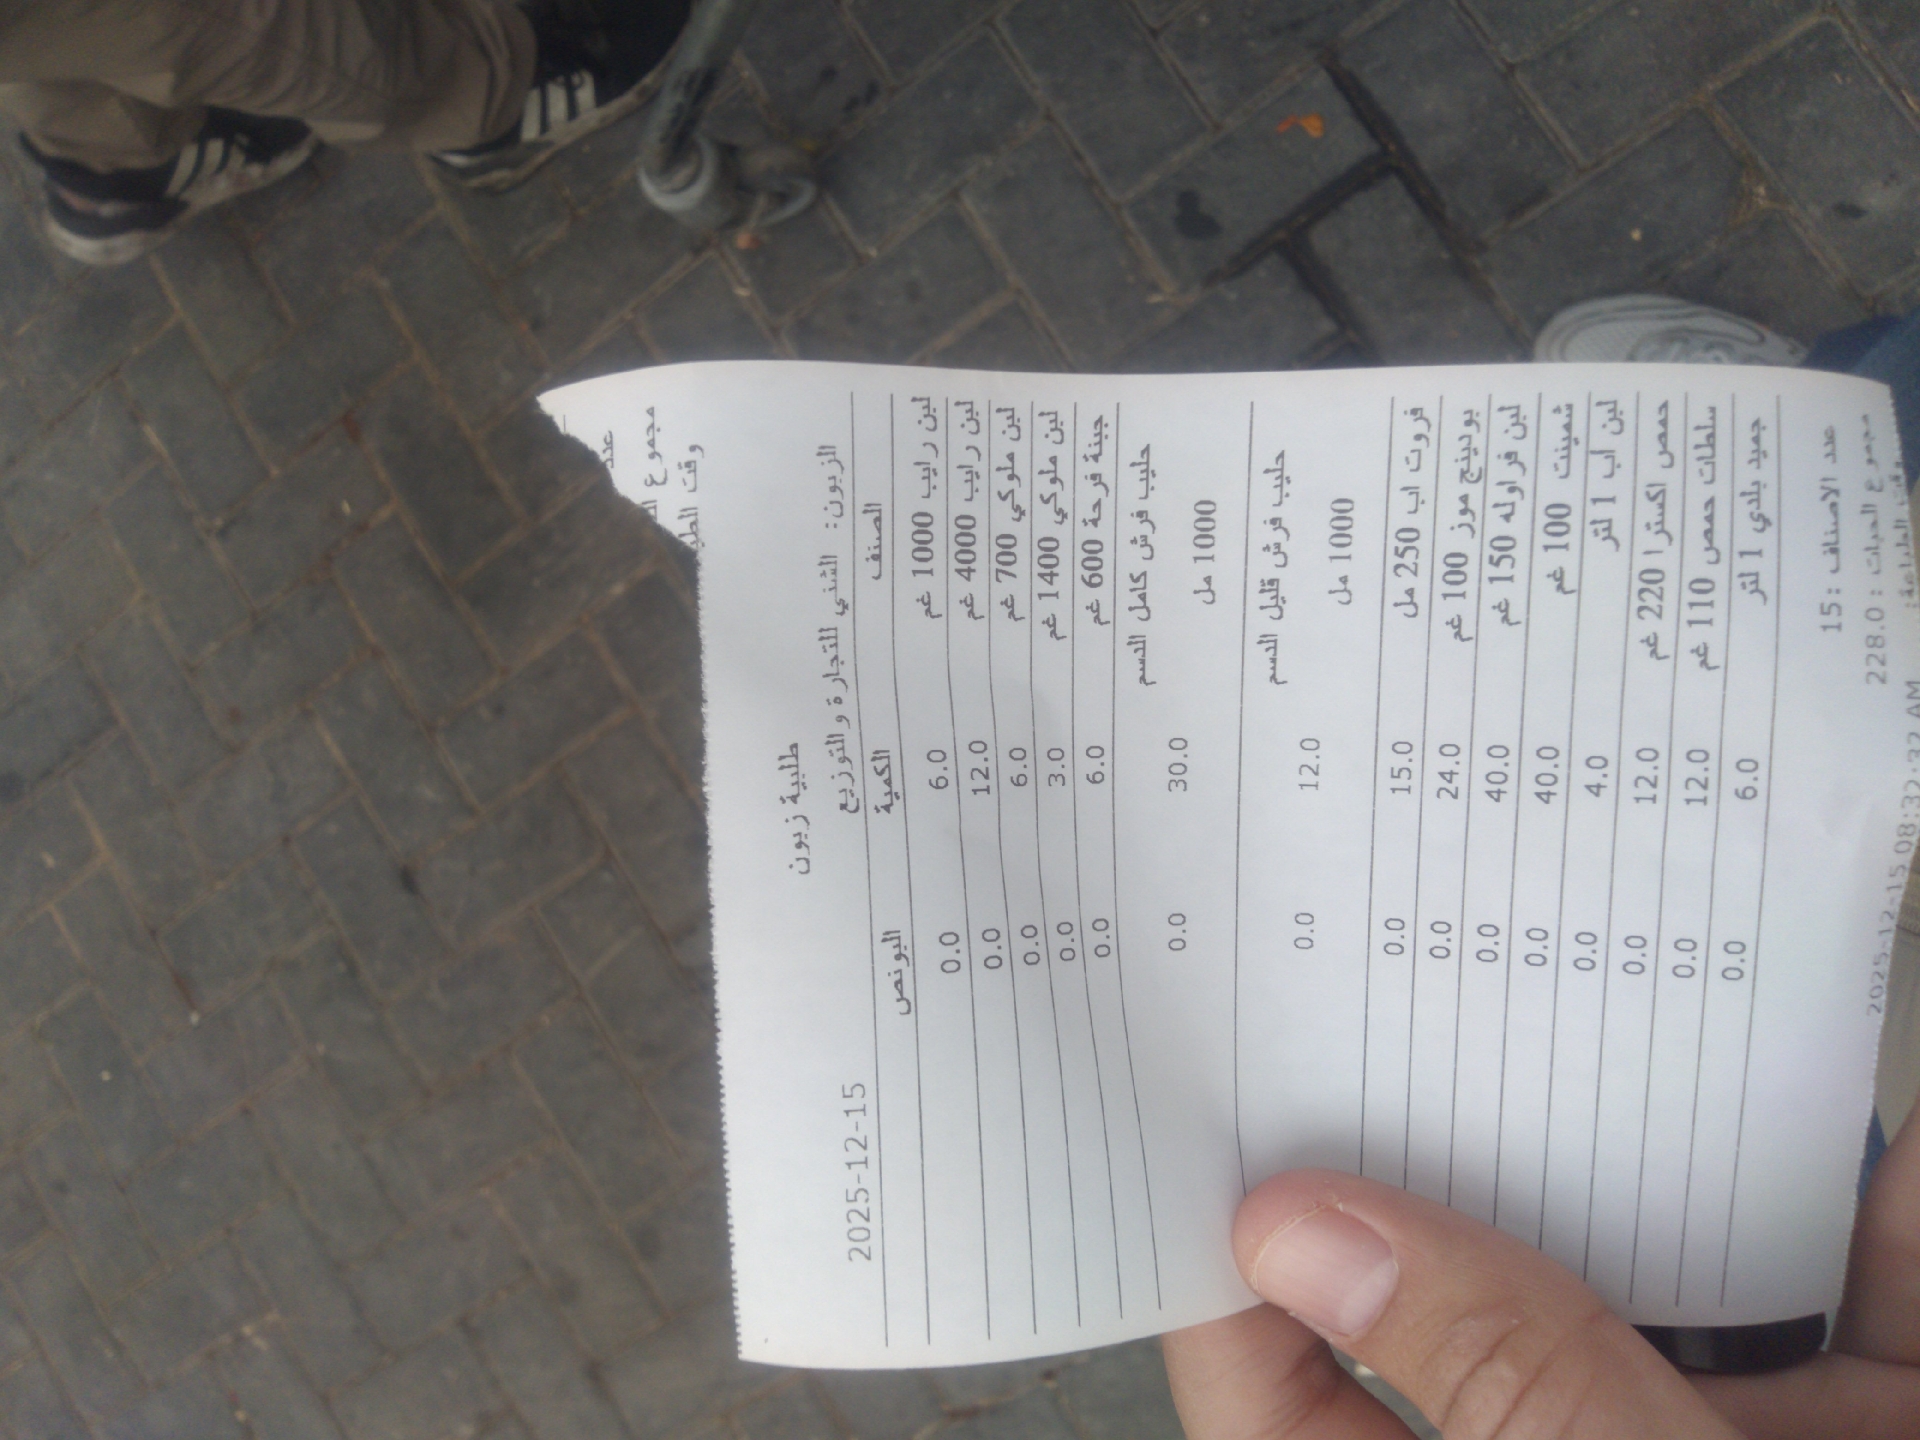 عدد
مجموع
وقت الطلب
طلبية زبون
الزبون: الشني للتجارة والتوزيع 2025-12-15
الصنف الكمية البونص
لبن رايب 1000 غم 6.0 0.0
لبن رايب 4000 غم 12.0 0.0
لبن ملوكي 700 غم 6.0 0.0
لبن ملوكي 1400 غم 3.0 0.0
جبنة فرحة 600 غم 6.0 0.0
حليب فرش كامل الدسم 30.0 0.0
1000 مل
حليب فرش قليل الدسم 12.0 0.0
1000 مل
فروت اب 250 مل 15.0 0.0
بودينج موز 100 غم 24.0 0.0
لبن فراوله 150 غم 40.0 0.0
شمينت 100 غم 40.0 0.0
لبن اب 1 لتر 4.0 0.0
حمص اكسترا 220 غم 12.0 0.0
سلطات حمص 110 غم 12.0 0.0
جميد بلدي 1 لتر 6.0 0.0
عدد الاصناف : 15
مجموع الحبات : 228.0
وقت الطباعة: 2025-12-15 08:32:32 AM